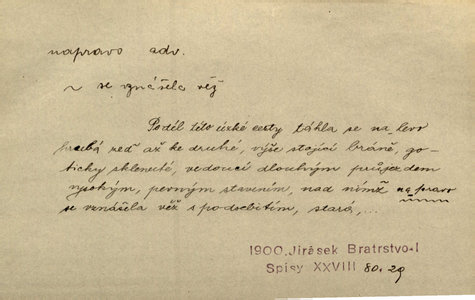 napravo adv.
~ se vznášela věž
Podél této úzké cesty táhla se na levo
hrubá zeď až ke druhé, výše stojící bráně, go-
ticky sklenuté, vedoucí dlouhým průjezdem
vysokým, pevným stavením, nad nímž na pravo
se vznášela věž s podsebitím, stará,...
1900. Jirásek Bratrstvo-I
Spisy XXVIII 80.29